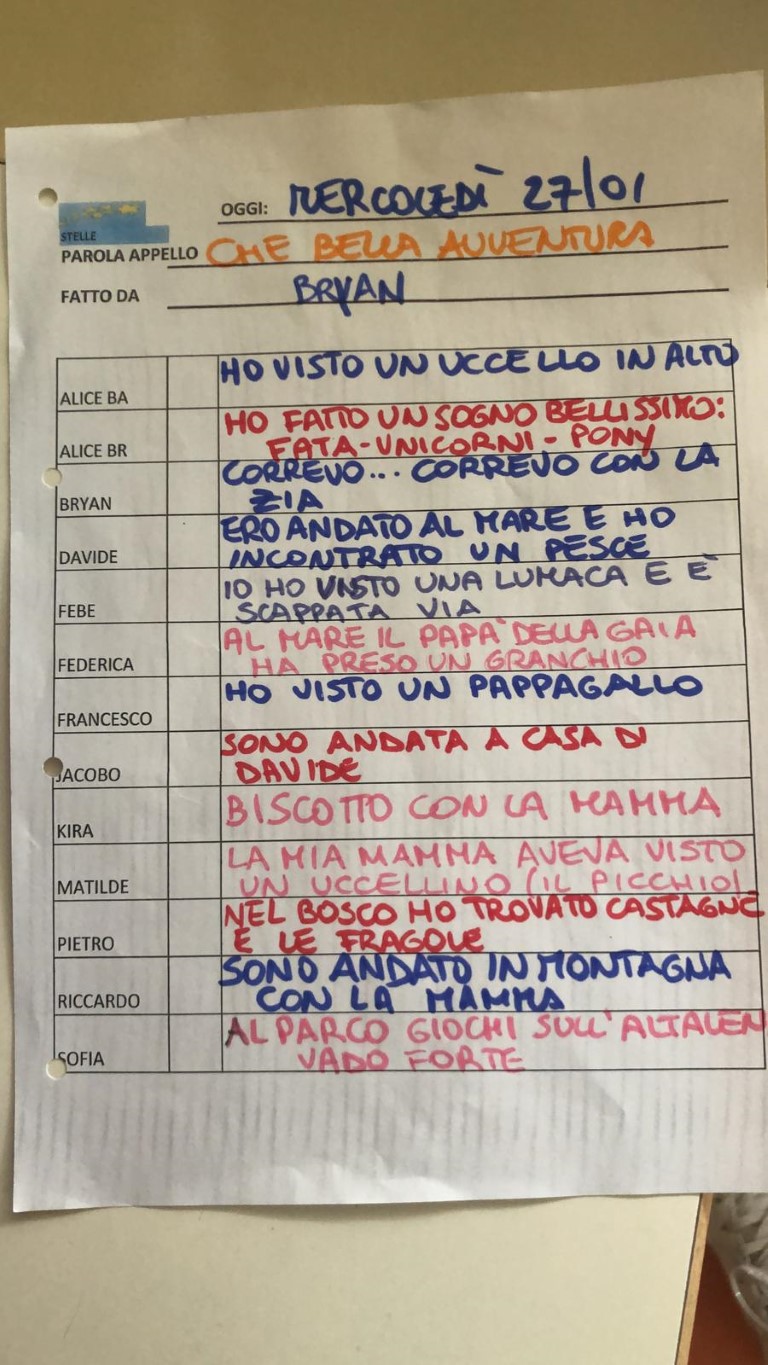 OGGI: MERCOLEDÌ 27/01
STELLE
PAROLA APPELLO CHE BELLA AVVENTURA
FATTO DA BRYAN
HO VISTO UN UCCELLO IN ALTO
ALICE BA
HO FATTO UN SOGNO BELLISSIMO:
ALICE BR FATA-UNICORNI-PONY
CORREVO... CORREVO CON LA
BRYAN ZIA
ERO ANDATO AL MARE E HO
DAVIDE INCONTRATO UN PESCE
IO HO VISTO UNA LUMACA E È
FEBE SCAPPATA VIA
AL MARE IL PAPÀ DELLA GAIA
FEDERICA HA PRESO UN GRANCHIO
HO VISTO UN PAPPAGALLO
FRANCESCO
SONO ANDATA A CASA DI
JACOBO DAVIDE
BISCOTTO CON LA MAMMA
KIRA
LA MIA MAMMA AVEVA VISTO
MATILDE UN UCCELLINO (IL PICCHIO)
NEL BOSCO HO TROVATO CASTAGNE
PIETRO E LE FRAGOLE
SONO ANDATO IN MONTAGNA
RICCARDO CON LA MAMMA
AL PARCO GIOCHI SULL'ALTALEN
SOFIA VADO FORTE